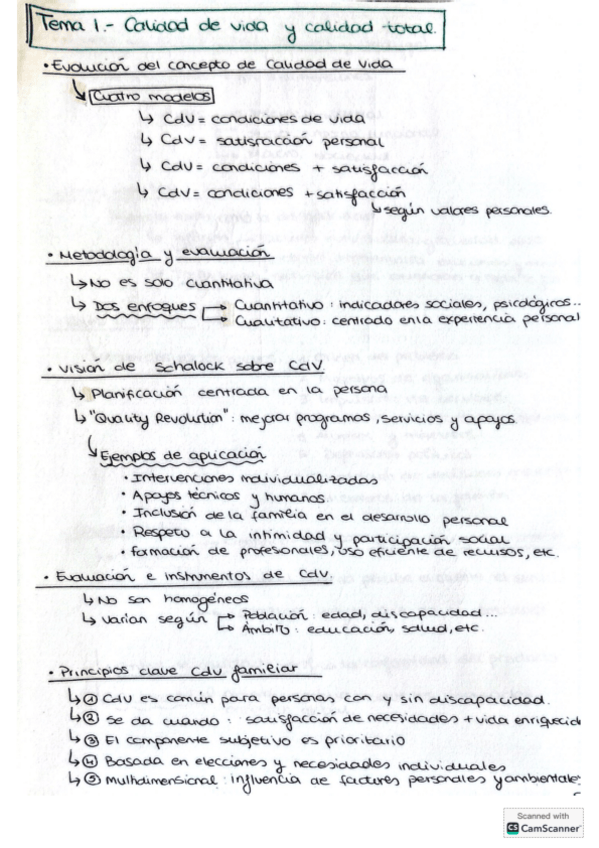 Tema 1.- Calidad de vida y calidad total.
• Evolución del concepto de Calidad de vida
Cuatro modelos
↳ CdV = condiciones de vida
↳ CdV = satisfacción personal
↳ CdV = condiciones + satisfacción
↳ CdV = condiciones + satisfacción
↳ según valores personales.
• Metodología y evaluación
↳ No es solo cuantitativa
↳ Dos enfoques → Cuantitativo : indicadores sociales, psicológicos...
→ Cualitativo : centrado en la experiencia personal
• Visión de Schalock sobre CdV
↳ Planificación centrada en la persona
↳ "Quality Revolution" : mejorar programas, servicios y apoyos
↳ Ejemplos de aplicación
• Intervenciones individualizadas
• Apoyos técnicos y humanos
• Inclusión de la familia en el desarrollo personal
• Respeto a la intimidad y participación social
• formación de profesionales, uso eficiente de recursos, etc.
• Evaluación e instrumentos de CdV.
↳ No son homogéneos
↳ Varían según → Población : edad, discapacidad...
→ Ámbito : educación, salud, etc.
• Principios clave CdV familiar
↳ ① CdV es común para personas con y sin discapacidad.
↳ ② Se da cuando : satisfacción de necesidades + vida enriquecid
↳ ③ El componente subjetivo es prioritario
↳ ④ Basada en elecciones y necesidades individuales
↳ ⑤ Multidimensional : influencia de factores personales y ambientales
Scanned with
CS CamScanner